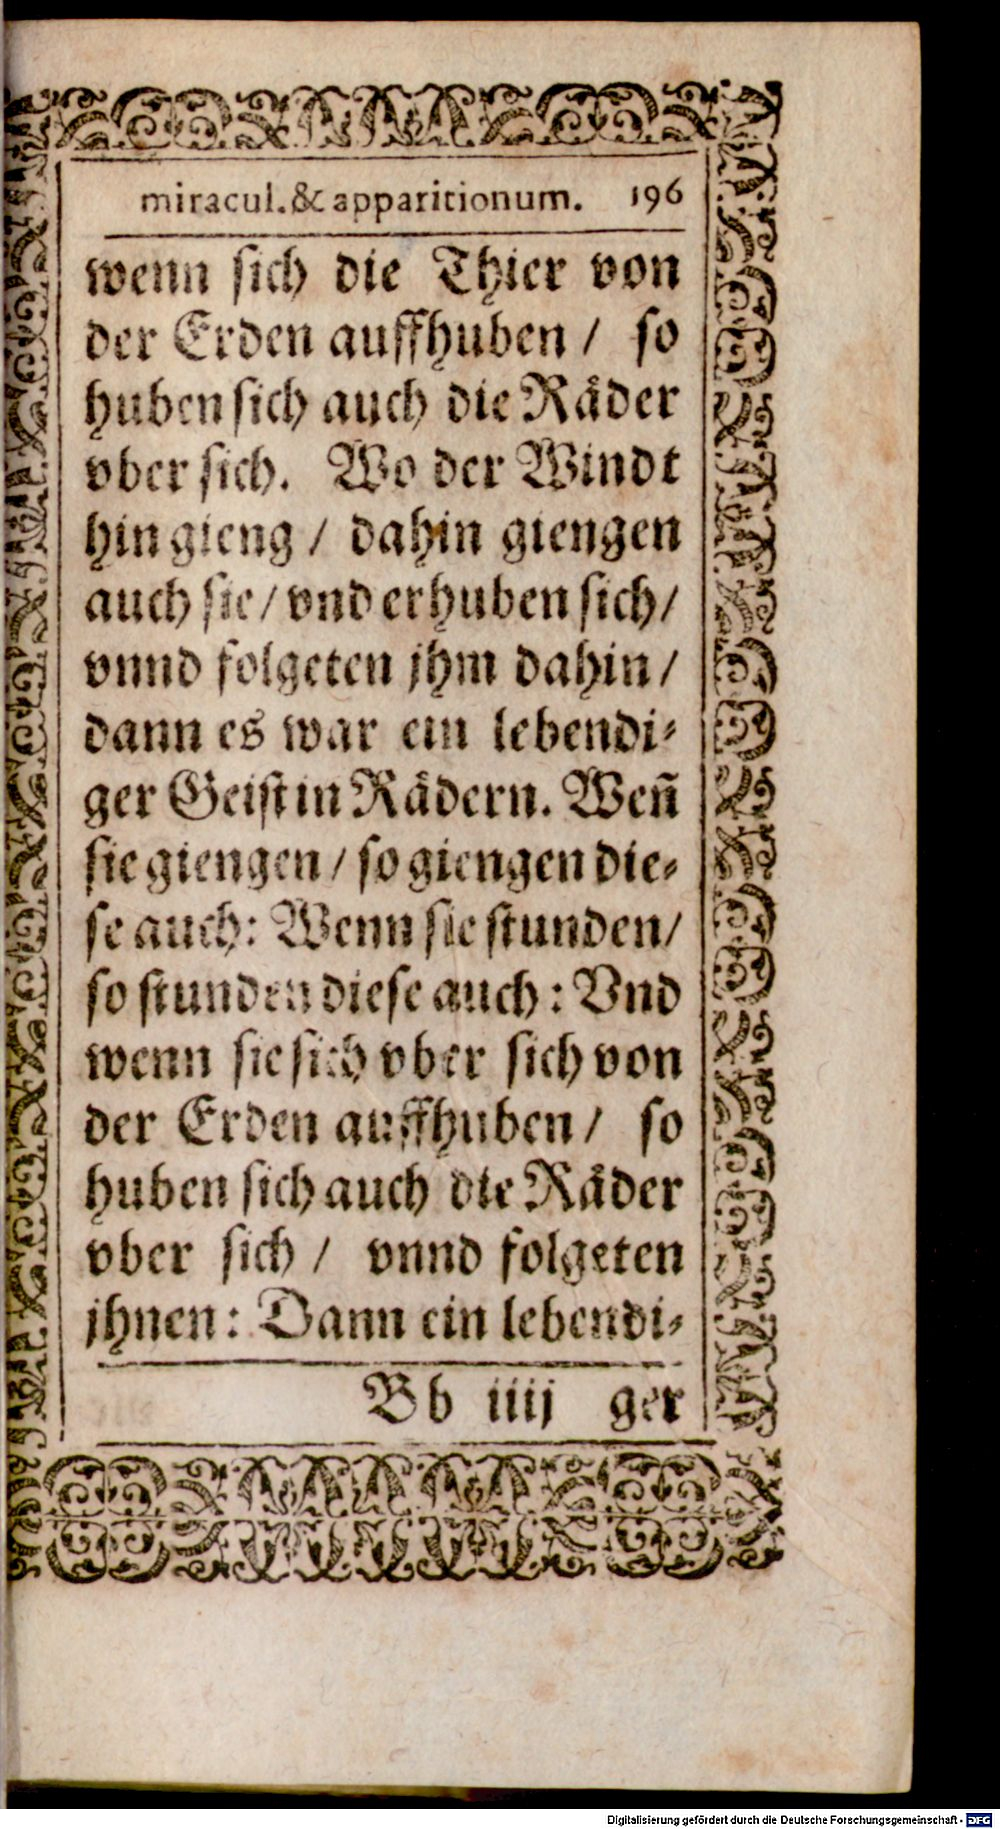 miracul. & apparitionum. 196
wenn sich die Thier von
der Erden auffhuben / so
huben sich auch die Räder
vber sich. Wo der Windt
hin gieng / dahin giengen
auch sie / vnd erhuben sich /
vnnd folgeten jhm dahin /
dann es war ein lebendi⸗
ger Geist in Rädern. Weñ
sie giengen / so giengen die⸗
se auch: Wenn sie stunden /
so stunden diese auch : Vnd
wenn sie sich vber sich von
der Erden auffhuben / so
huben sich auch die Räder
vber sich / vnnd folgeten
jhnen : Dann ein lebendi⸗
Bb iiij ger
Digitalisierung gefördert durch die Deutsche Forschungsgemeinschaft - DFG